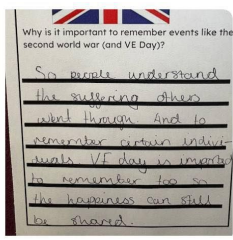 Why is it important to remember events like the
second world war (and VE Day)?
So people understand
the suffering others
went through. And to
remember certain indivi-
duals. VE day is importat
to remember too so
the happiness can still
be shared.